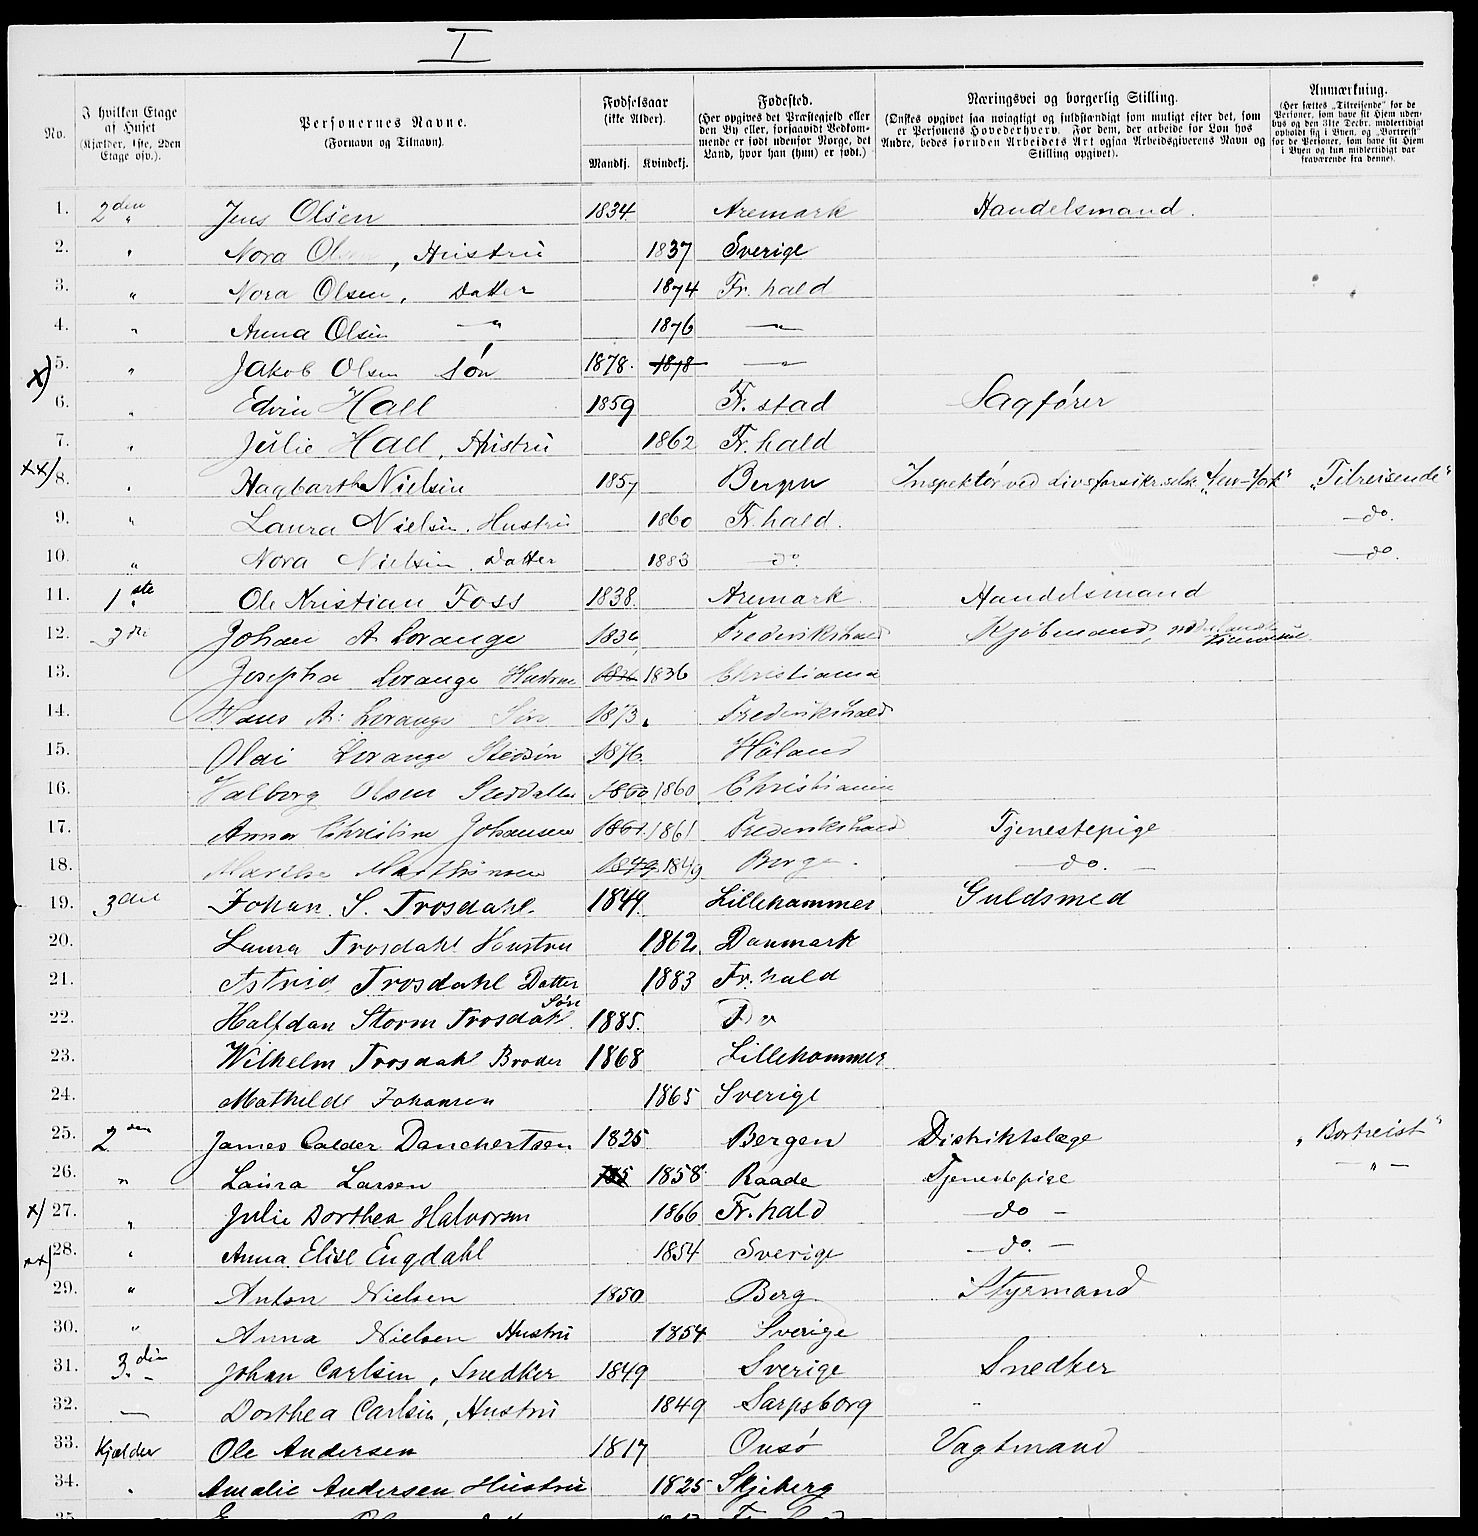 I
No.
I hvilken Etage af Huset (Kjælder, 1ste, 2den Etage osv.).
Personernes Navne. (Fornavn og Tilnavn).
Fødselsaar (ikke Alder). Mandkj. Kvindekj.
Fødested. (Her opgives det Præstegjeld eller den By eller, forsaavidt Vedkommende er født udenfor Norge, det Land, hvor han (hun) er født.)
Næringsvei og borgerlig Stilling. (Ønskes opgivet saa nøiagtigt og fuldstændigt som muligt efter det, som er Personens Hovederhverv. For dem, der arbeide for Løn hos Andre, bedes foruden Arbeidets Art ogsaa Arbeidsgiverens Navn og Stilling opgivet).
Anmærkning. (Her sættes „Tilreisende" for de Personer, som have sit Hjem udenbys og den 31te Decbr. midlertidigt opholdt sig i Byen, og „Bortreist" for de Personer, som have sit Hjem i Byen og kun midlertidigt var fraværende fra denne).
1. 2den " Jens Olsen 1834 Aremark Handelsmand.
2. " Nora Olsen, Hustru 1837 Sverige
3. " Nora Olsen, Datter 1874 Fr. hald
4. " Anna Olsen —"— 1876 —"—
x) 5. " Jakob Olsen Søn 1878. 1878 —"—
6. " Edvin Hall 1859 Fr. stad Sagfører
7. " Julie Hall, Hustru 1862 Fr. hald
xx) 8. " Hagbarth Nielsen 1857 Bergen Inspektør ved Livsforsikr.selsk. „New-York" „Tilreisende"
9. " Laura Nielsen, Hustru 1860 Fr. hald. —do.
10. " Nora Nielsen, Datter 1883 —do. —do.
11. 1ste " Ole Kristian Foss 1838. Aremark. Handelsmand
12. 3die Johan A. Lorange 1836 Frederikshald Kjøbmand,
13. Josepha Lorange Hustru 1836 1836 Christiania
14. Hans A. Lorange Søn 1873 Frederikshald
15. Olai Lorange Stedsøn 1876. Høland
16. Valborg Olsen Steddatter 1860 1860 Christiania
17. Anna Christine Johansen 1861 1861 Frederikshald Tjenestepige
18. Marthe Marthinsen 1849 1849 Berg. —do.—
19. 3die Johan S. Trosdahl. 1849. Lillehammer Guldsmed
20. Laura Trosdahl Houstru 1862. Danmark
21. Astrid Trosdahl Datter 1883 Fr. hald
22. Halfdan Storm Trosdahl Søn 1885. Do
23. Wilhelm Trosdahl Broder 1868 Lillehammer
24. Mathilde Johansen 1865 Sverige
25. 2den James Calder Danchertsen 1825 Bergen Distriktslæge „Bortreist"
26. " Laura Larsen 1858 Raade Tjenestepige —"—
x) 27. " Julie Dorthea Halvorsen 1866 Fr. hald —do—
xx) 28. " Anna Elise Engdahl 1854 Sverige —do.—
29. " Anton Nielsen 1850 Berg Styrmand
30. " Anna Nielsen Hustru 1854 Sverige
31. 3die Johan Carlsen, Snedker 1849 Sverige Snedker
32. — Dorthea Carlsen, Hustru 1849 Sarpsborg
33. Kjælder Ole Andersen 1817 Onsø Vagtmand
34. " Amalie Andersen Hustru 1825 Skjeberg